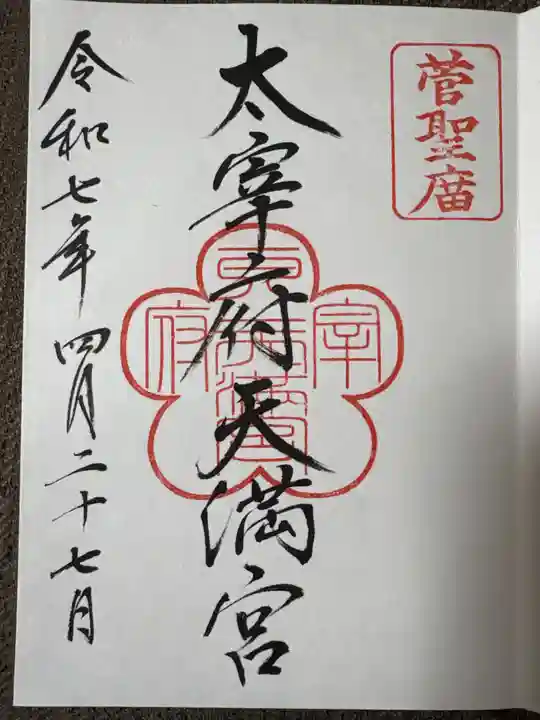 菅聖庿
太宰府天満宮
宰
府
令和七年四月二十七日